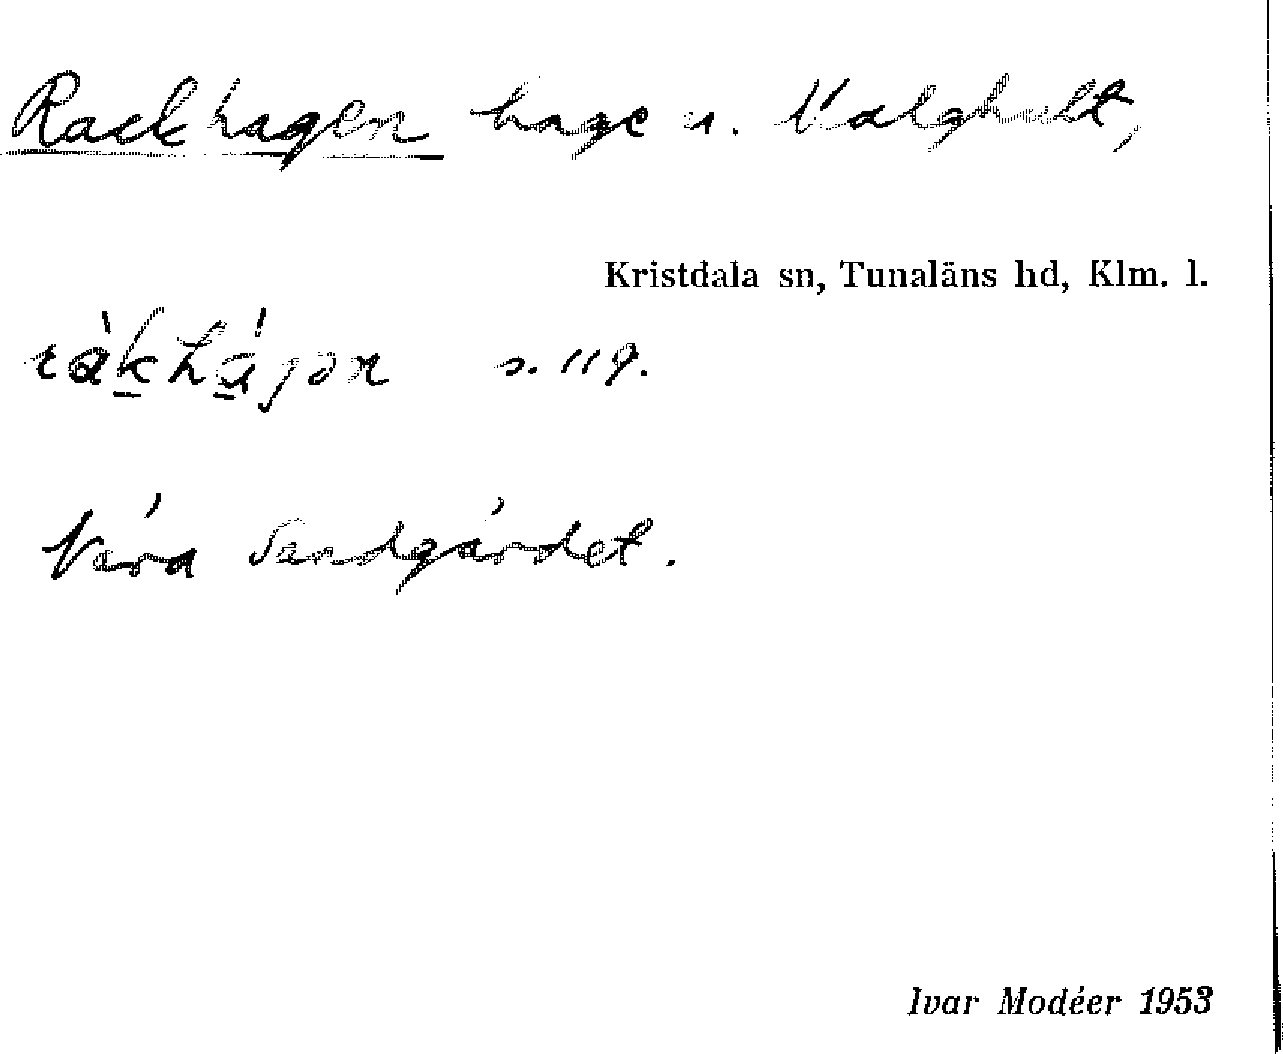 Rackhagen hage u. Malghult,
Kristdala sn, Tunaläns hd, Klm. l.
s. 119.
Nära Sandgärdet.
Ivar Modéer 1953